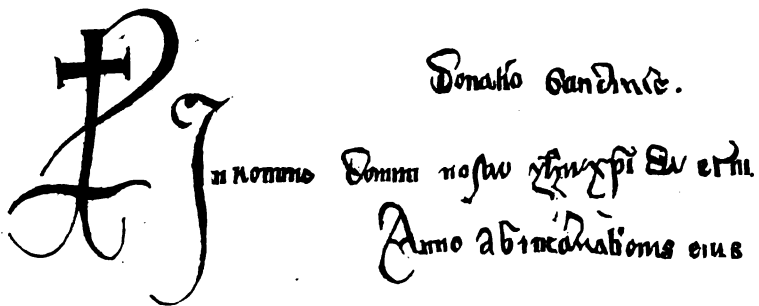 Donatio
In nomine Domini nostri ihu xpi Dei eterni.
Anno ab incarnationis eius